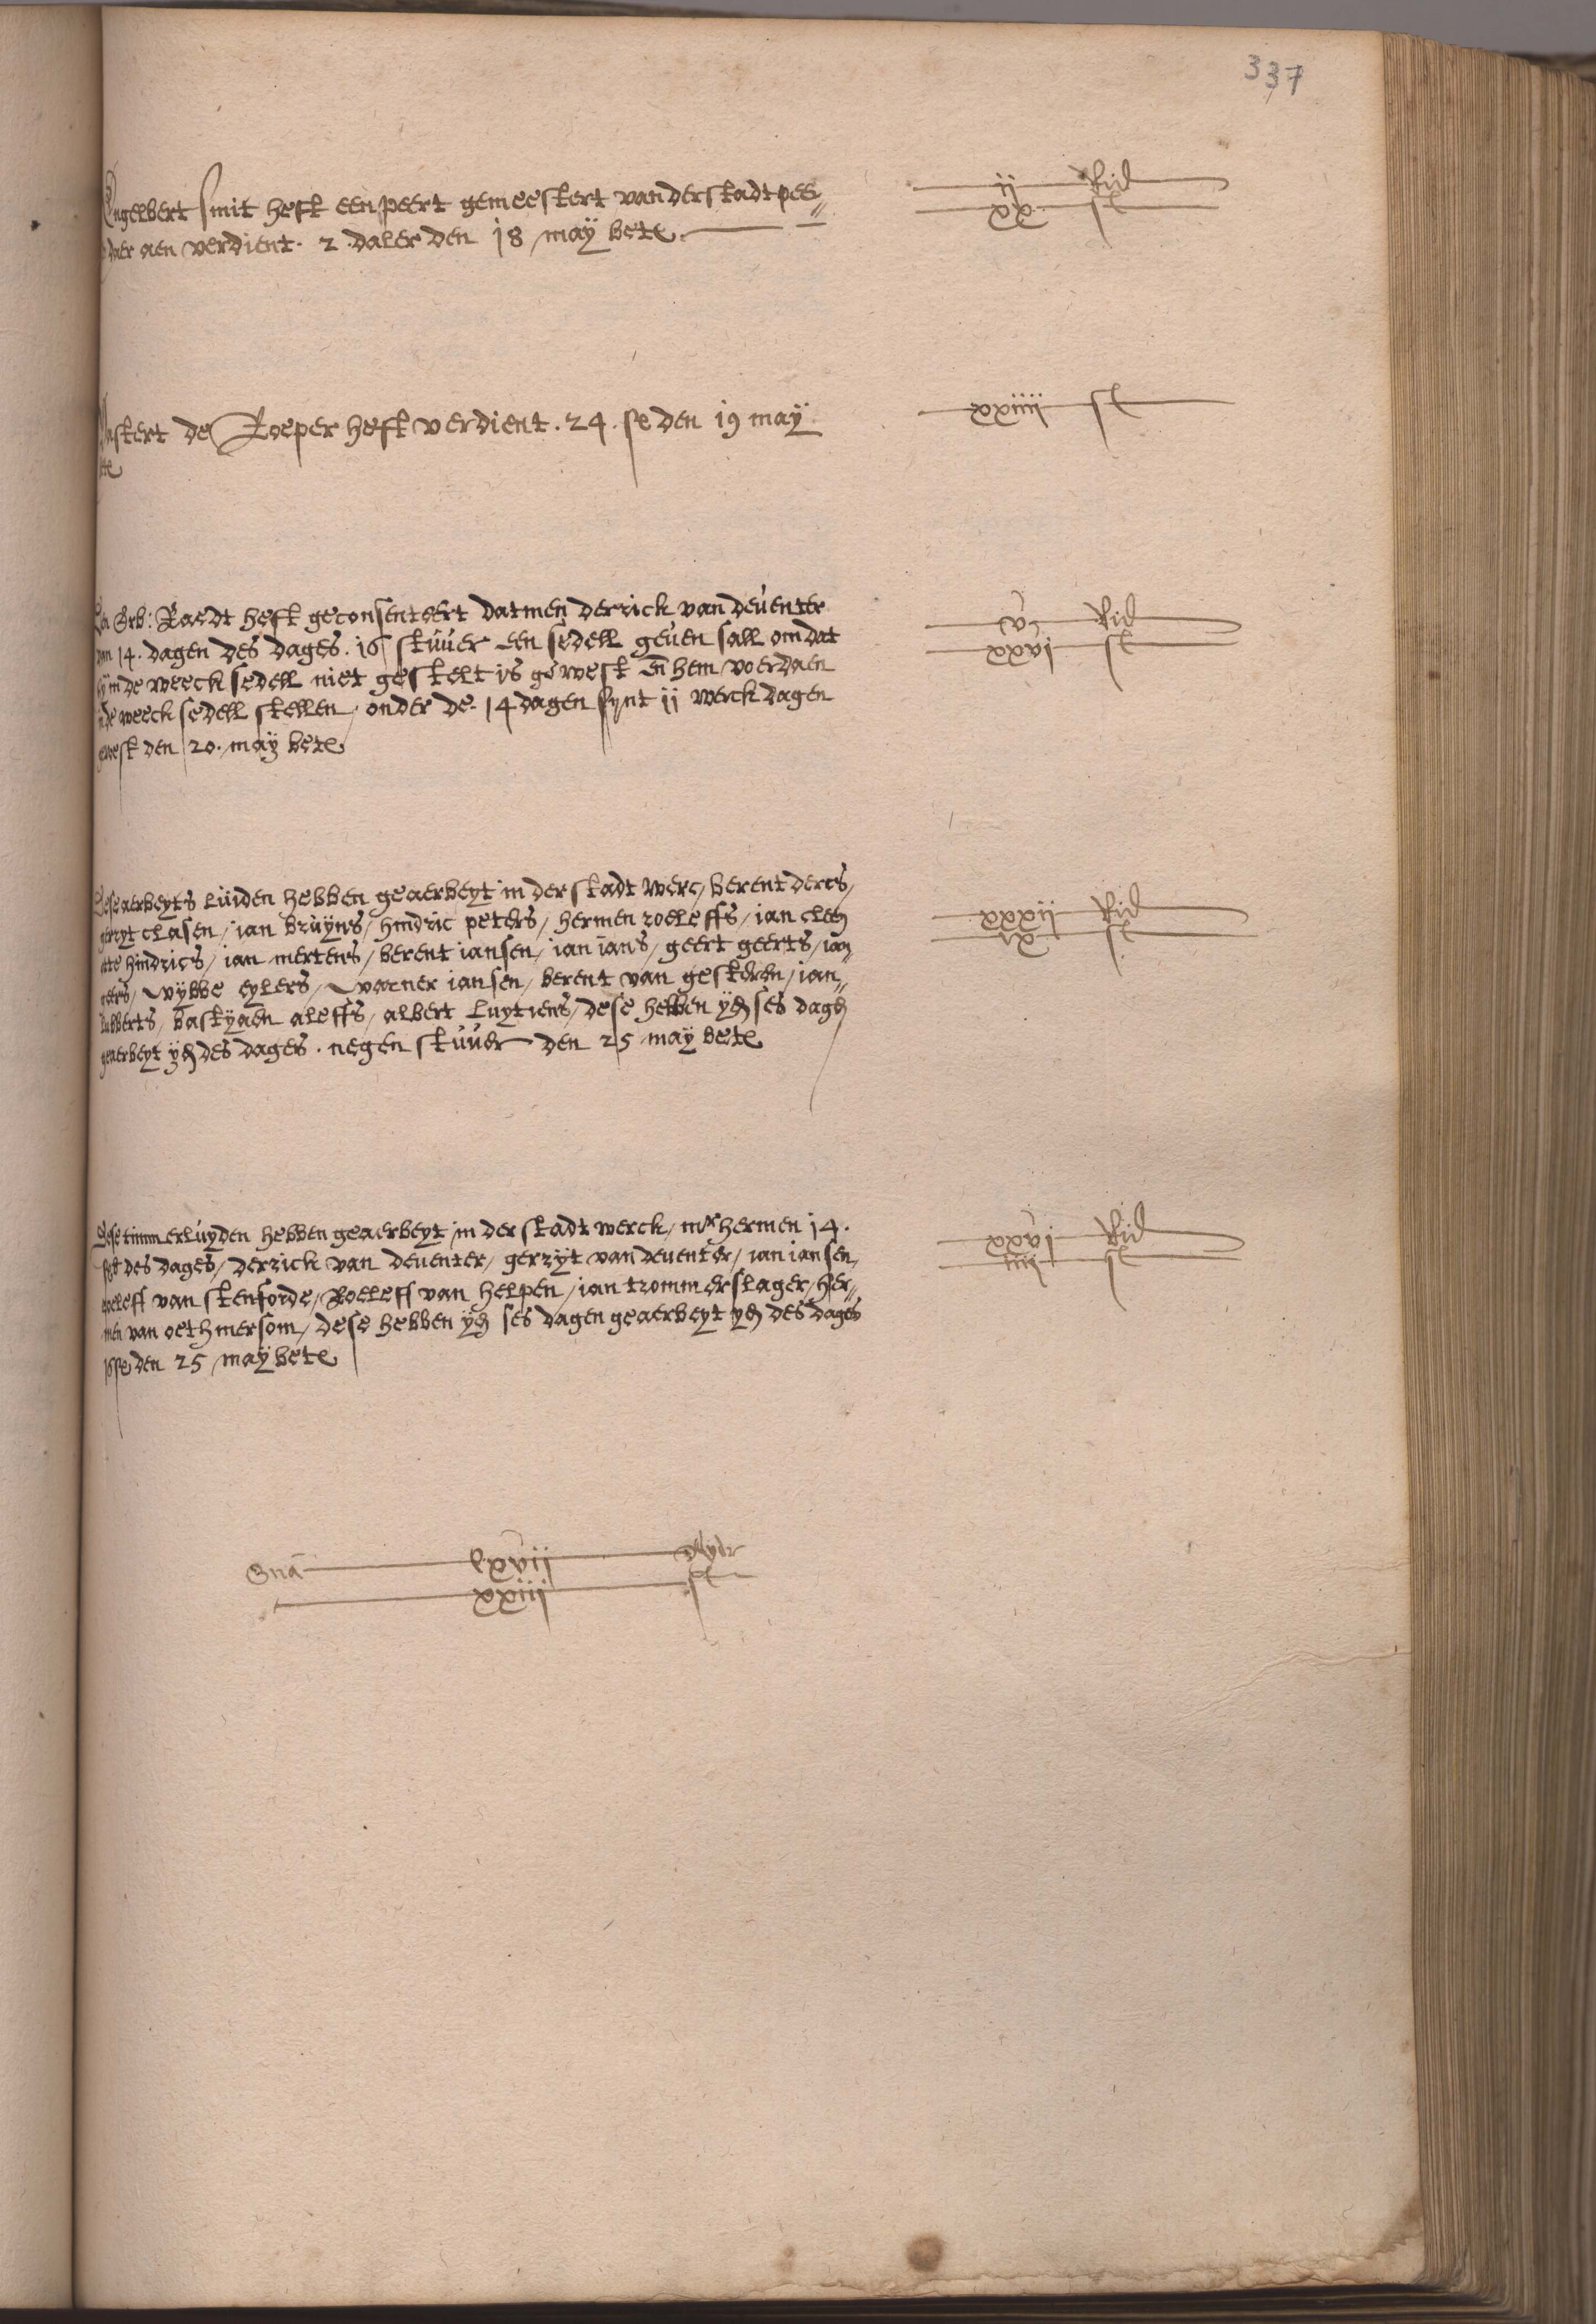 337
Engelbert smit heft een peert gemeestert vander stadt peer„
daer aen verdient . 2 . daler den 18 may bete
ij Rid
xx st
de Roeper heft verdient . 24 . st den 19 may
bete
xxiiij st
Erb: Raedt heft geconsenteert datmen derrick van deventer
van 14 . dagen des dages . 16 stuver een sedell geven sall om dat
hy in de weeck sedell niet gestelt is gewest en hem voerdaen
in de weeck sedell stellen / onder de 14 dagen synt ij werck dagen
gewest den 20 . may bete
Rid
xxvj st
Dese aerbeyts luiden hebben geaerbeyt in der stadt werc / berent dercs /
gerryt clasen / ian bruyns / hindric peters / hermen roeleffs / ian
hindrics / ian mertens / berent iansen / ian ians / geert geerts / ian
geers / wybbe eylers / warner iansen / berent van gesteren / ian„
lubberts / bastyaen aleffs / albert luytiens / dese hebben yd ses dagen
geaerbeyt yd des dages . negen stuver den 25 may bete
xxxij Rid
st
Dese timmerluyden hebben geaerbeyt in der stadt werck / mr hermen 14 .
st des dages / derrick van deventer / gerryt van deventer / ian iansen
roeleff van stenforde / Roeleff van helpen / ian trommerslager / her„
men van oethmersom / dese hebben yd ses dagen geaerbeyt yd des dages
st den 25 may bete
xxvj Rid
iiij st
Sma lxvij Rydr
xxiij st